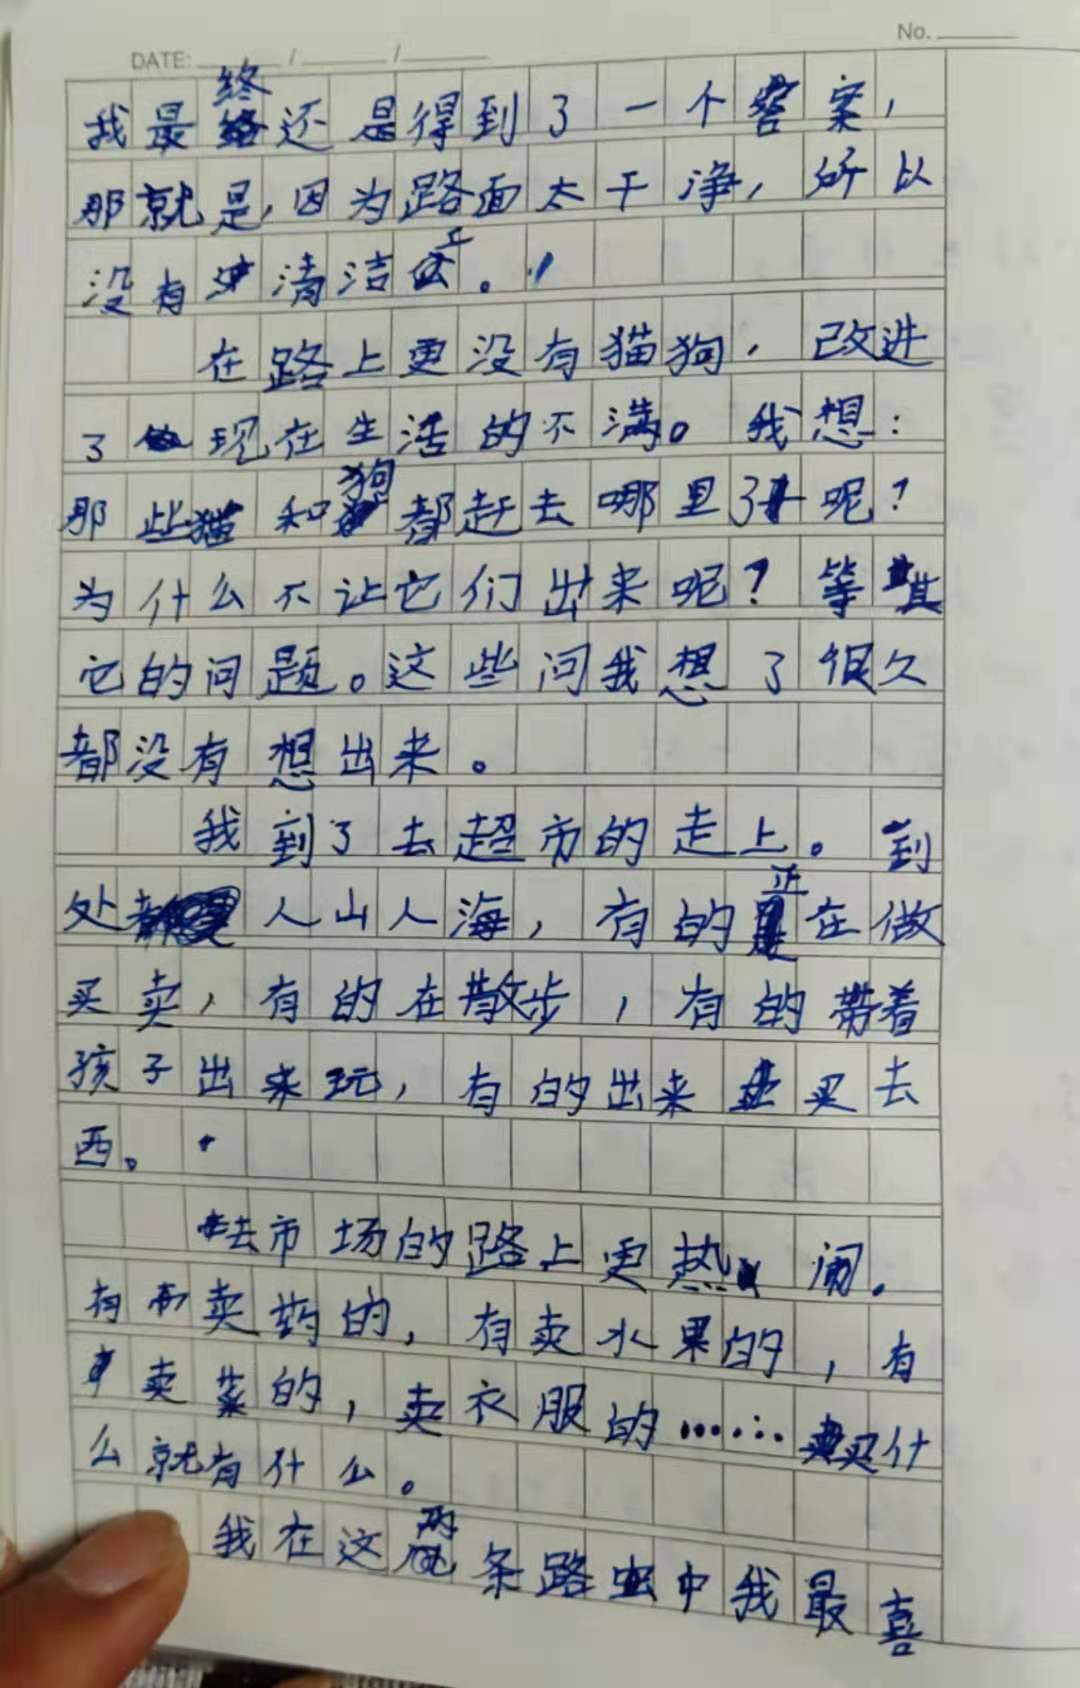 No.
DATE: / /
我最终还是得到了一个答案，
那就是，因为路面太干净，所以
没有清洁工。
在路上更没有猫狗，改进
了现在生活的不满。我想：
那些猫和狗都赶去哪里了呢？
为什么不让它们出来呢？等其
它的问题。这些问我想了很久
都没有想出来。
我到了去超市的走上。到
处人山人海，有的正在做
买卖，有的在散步，有的带着
孩子出来玩，有的出来买去
西。
去市场的路上更热闹。
有卖药的，有卖水果的，有
卖菜的，卖衣服的……买什
么就有什么。
我在这两条路中我最喜